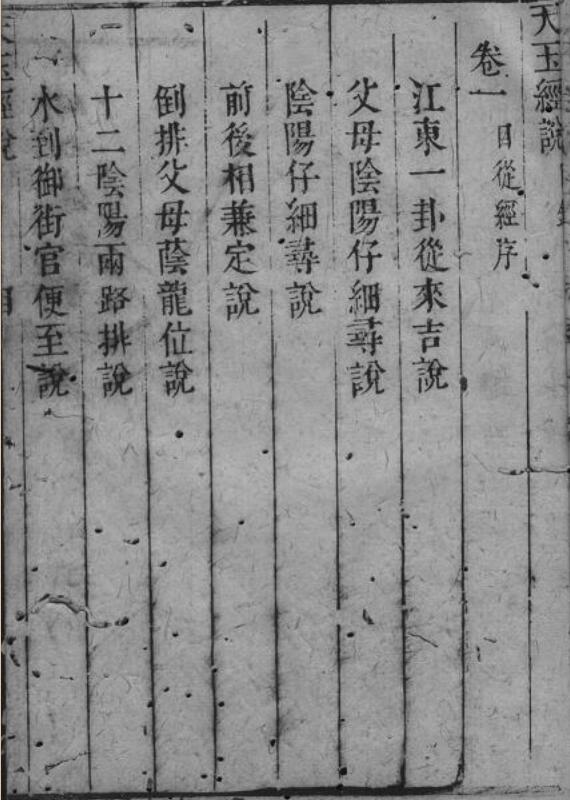 天玉經說目錄
卷一 目從經序
江東一卦從來吉說
父母陰陽仔細尋說
陰陽仔細尋說
前後相兼定說
倒排父母蔭龍位說
十二陰陽兩路排說
水到御街官便至說
天玉經說 目